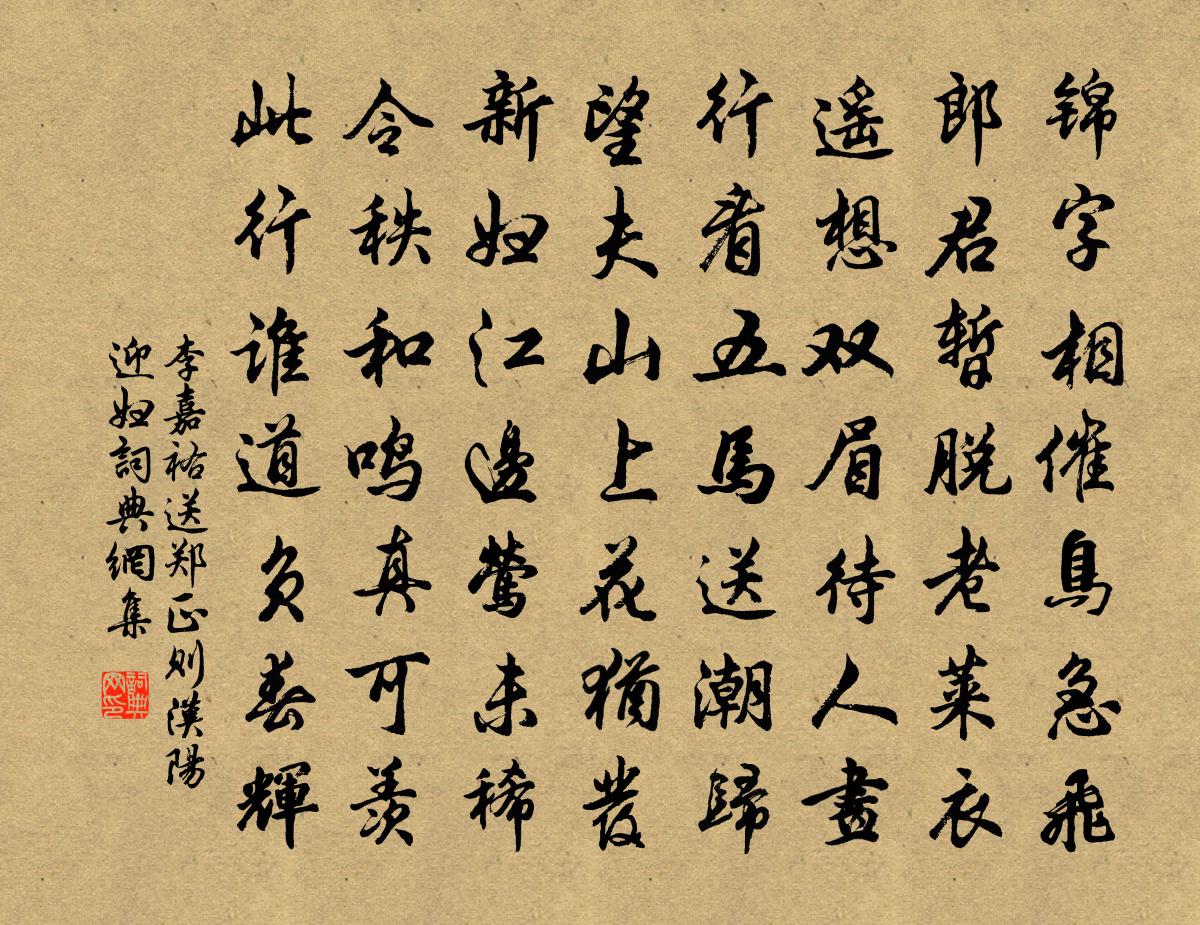 锦字相催鳥急飛
郎君暫脱老莱衣
遥想双眉待人畫
行看五馬送潮歸
望夫山上花猶發
新妇江邊鶯未稀
令秩和鸣真可羨
此行谁道负春輝
李嘉祐送郑正则漢陽
迎妇詞典網集
詞典网印